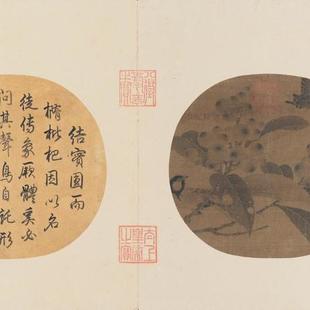 結實圓而
橢枇杷因以名
徒傳象厥體奚必
問其聲鳥自託形